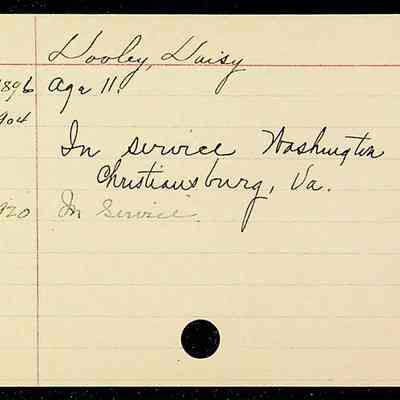 Dooley, Daisy
1896 Age 11.
904
In service Washington
Christiansburg, Va.
920 In Service.